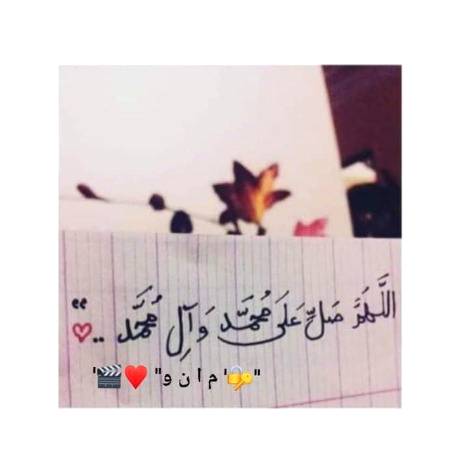 اللَّهُمَّ صَلِّ عَلَى مُحَمَّد وَآلِ مُحَمَّد .. ♡ “
"🔐' م ا ن و" ♥️🎬'